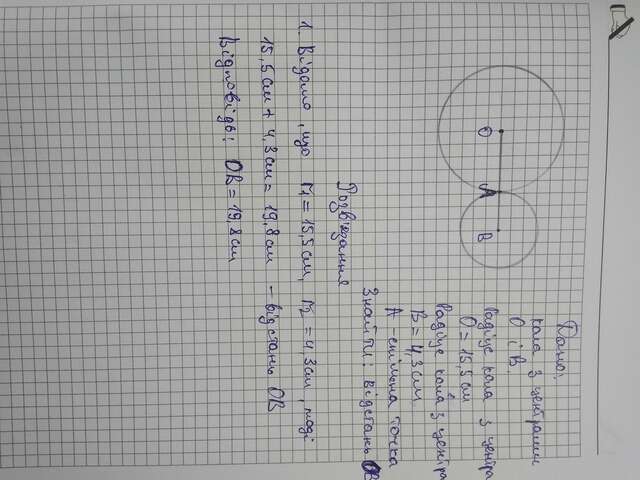 O
A
B
Дано:
кола з центрами
O і B.
Радіус кола з центра
O = 15,5 см
Радіус кола з центра
B = 4,3 см
A - спільна точка
Знайти: відстань OB
Розв'язання
1. Відомо, що r₁ = 15,5 см, r₂ = 4,3 см, тоді
15,5 см + 4,3 см = 19,8 см - відстань OB
Відповідь: OB = 19,8 см